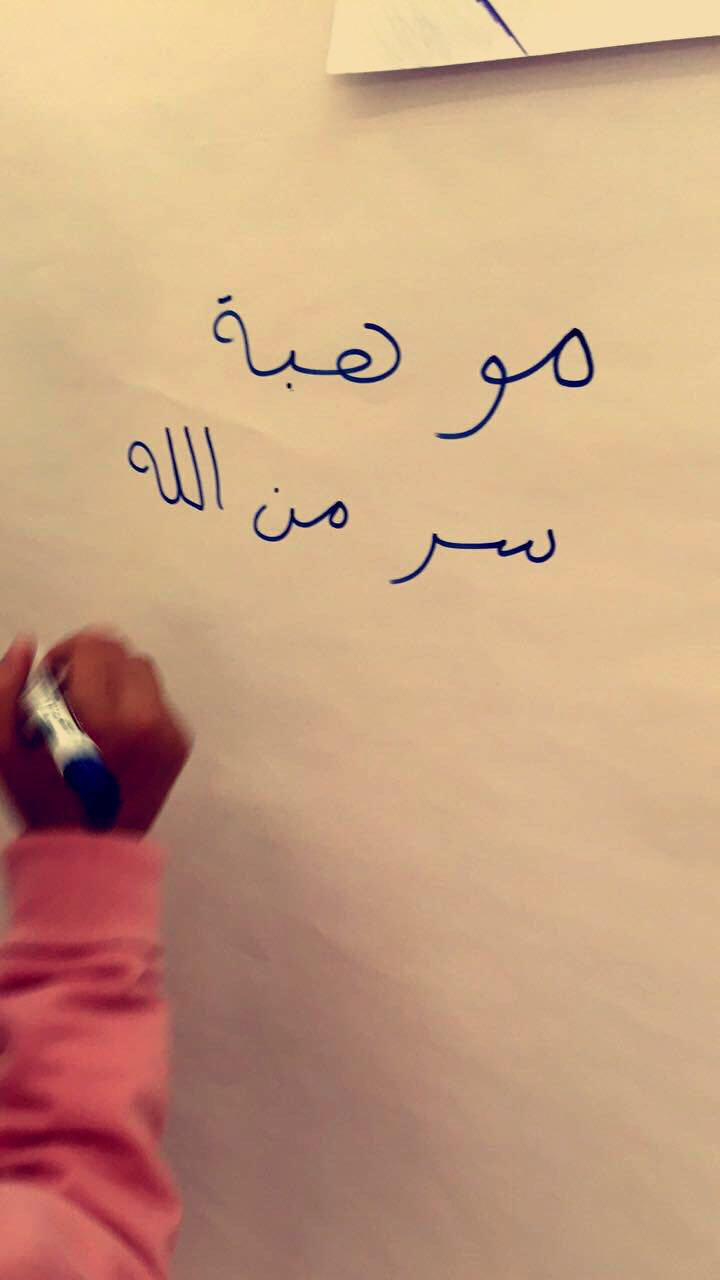 موهبة
سر من الله